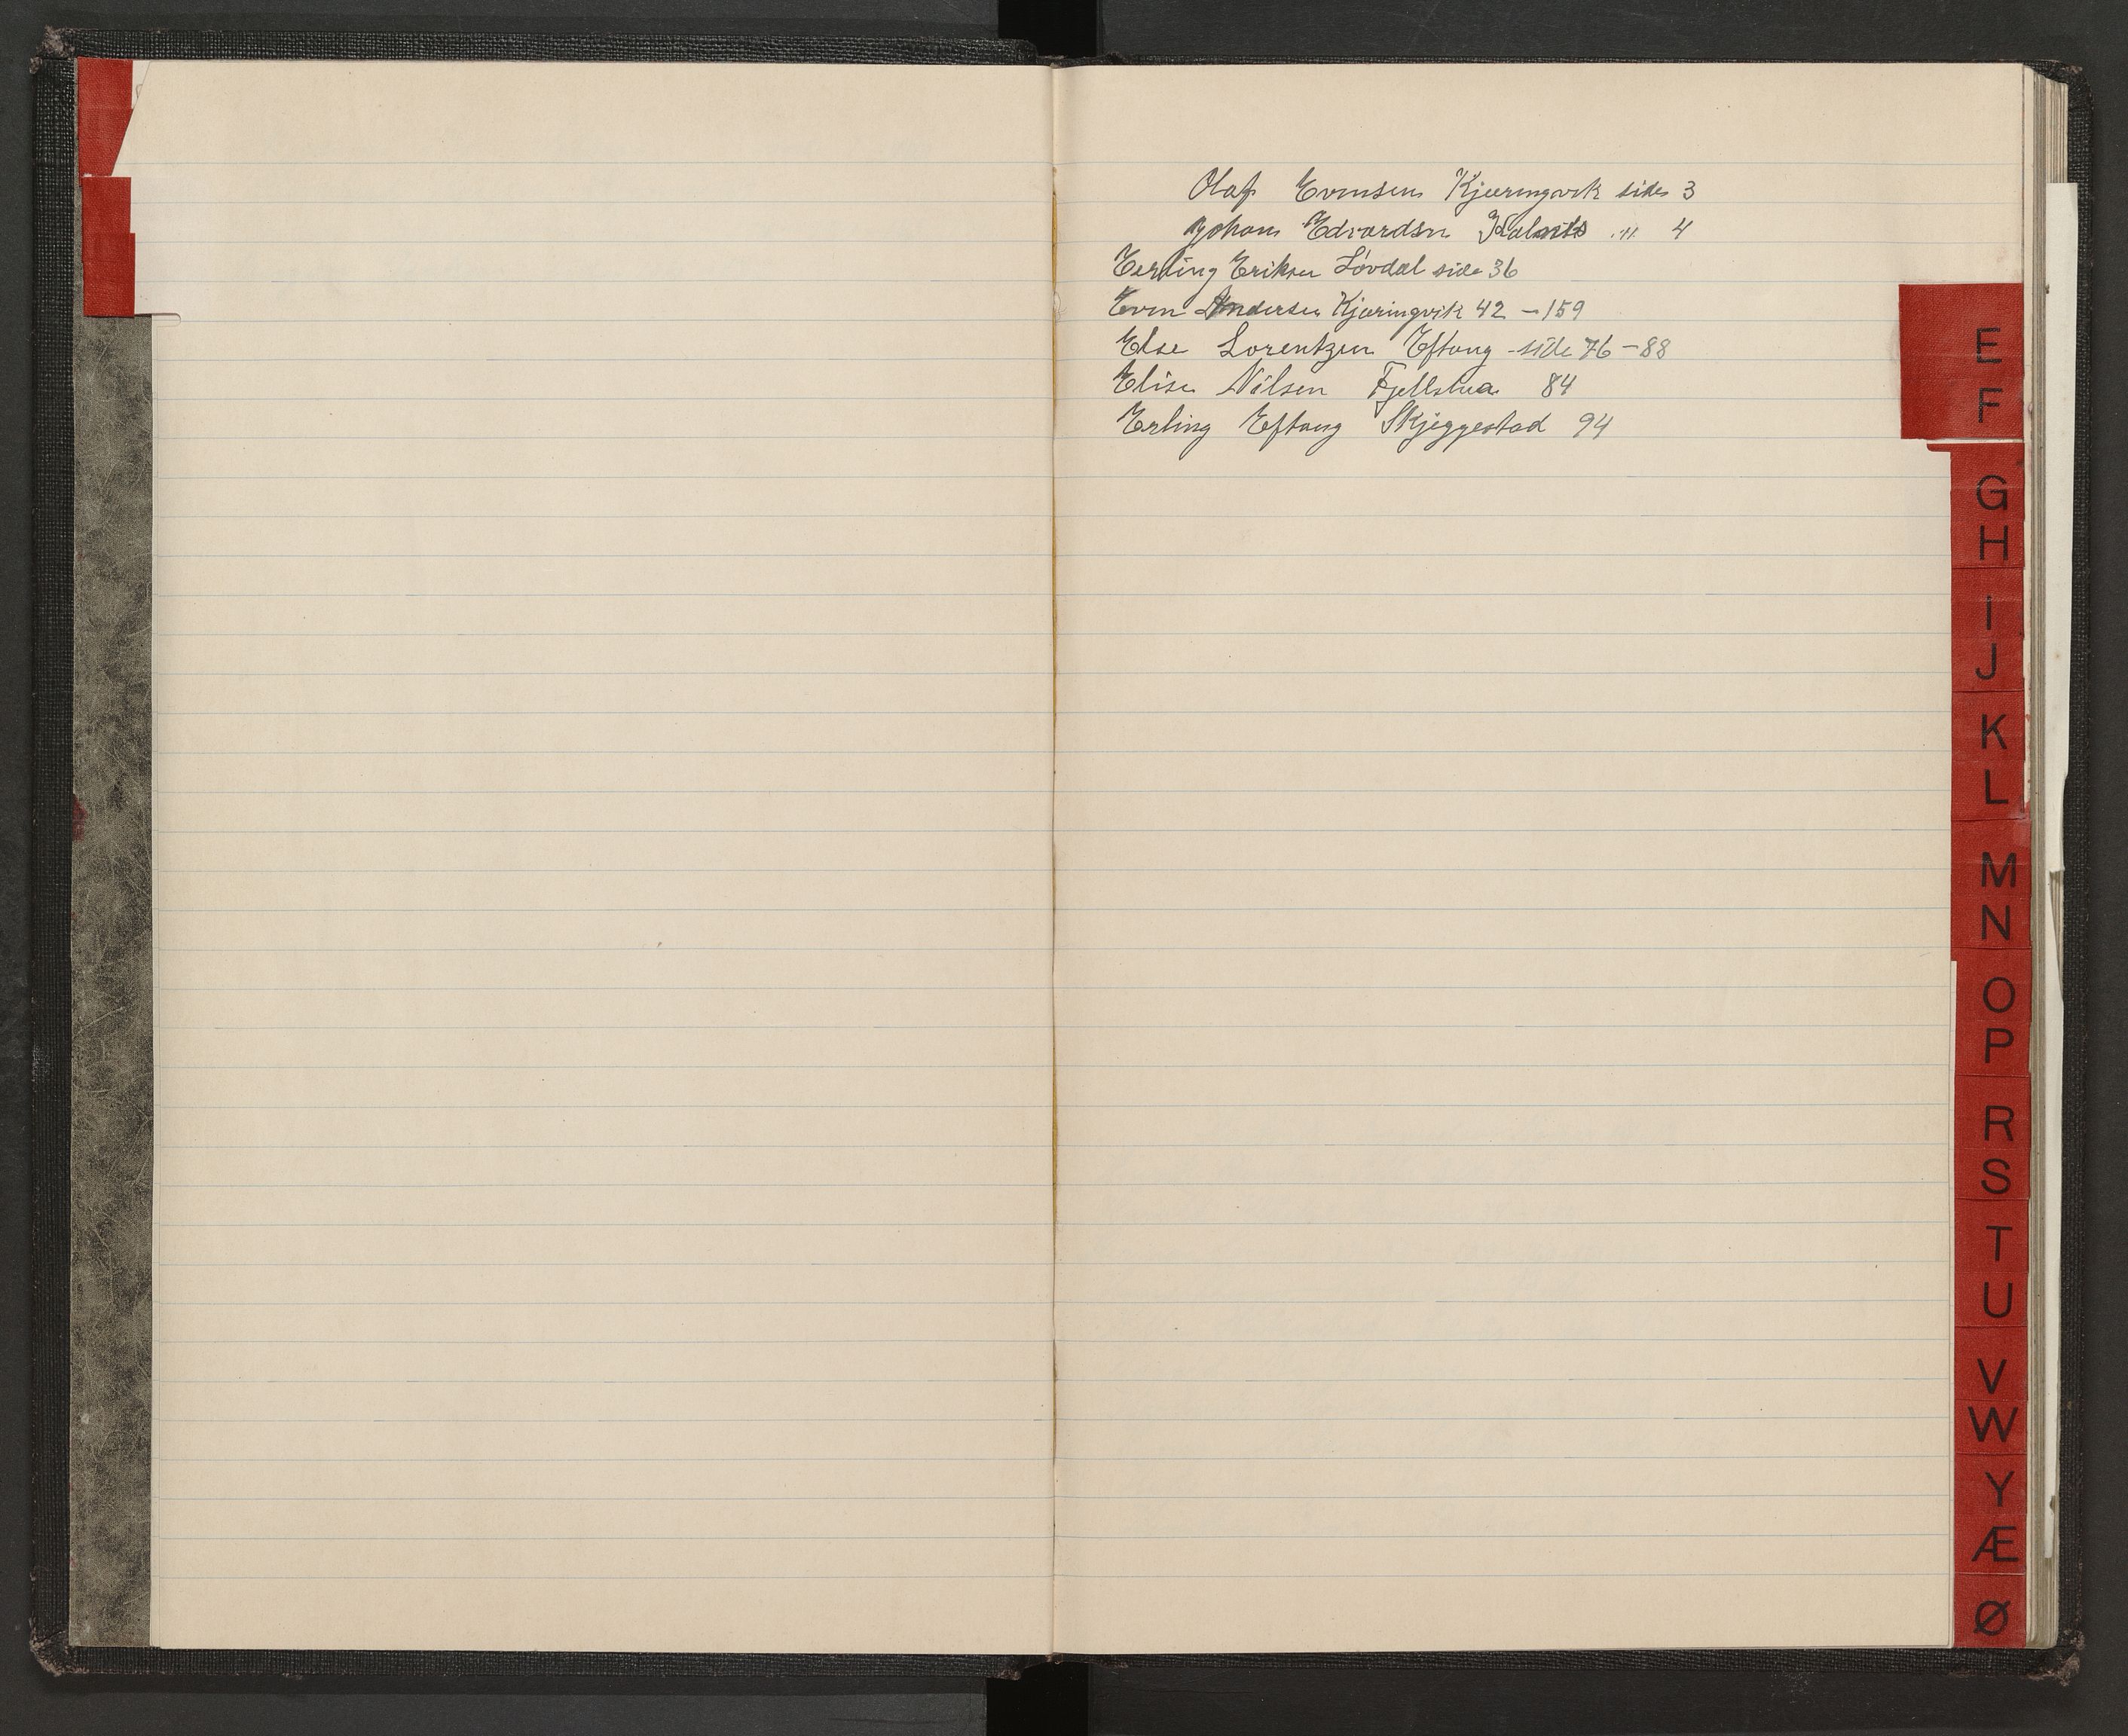 Olaf Evensen Kjæringvik side 3
Johan Edvardsen " 4
Erling Eriksen Løvdal side 36
Even Andersen Kjæringvik 42 - 159
Else Lorentzen Eftang - side 76 - 88
Elise Nilsen Fjellstua 84
Erling Eftang Skjeggestad 94
E
F
G
H
I
J
K
L
M
N
O
P
R
S
T
U
V
W
Y
Æ
Ø